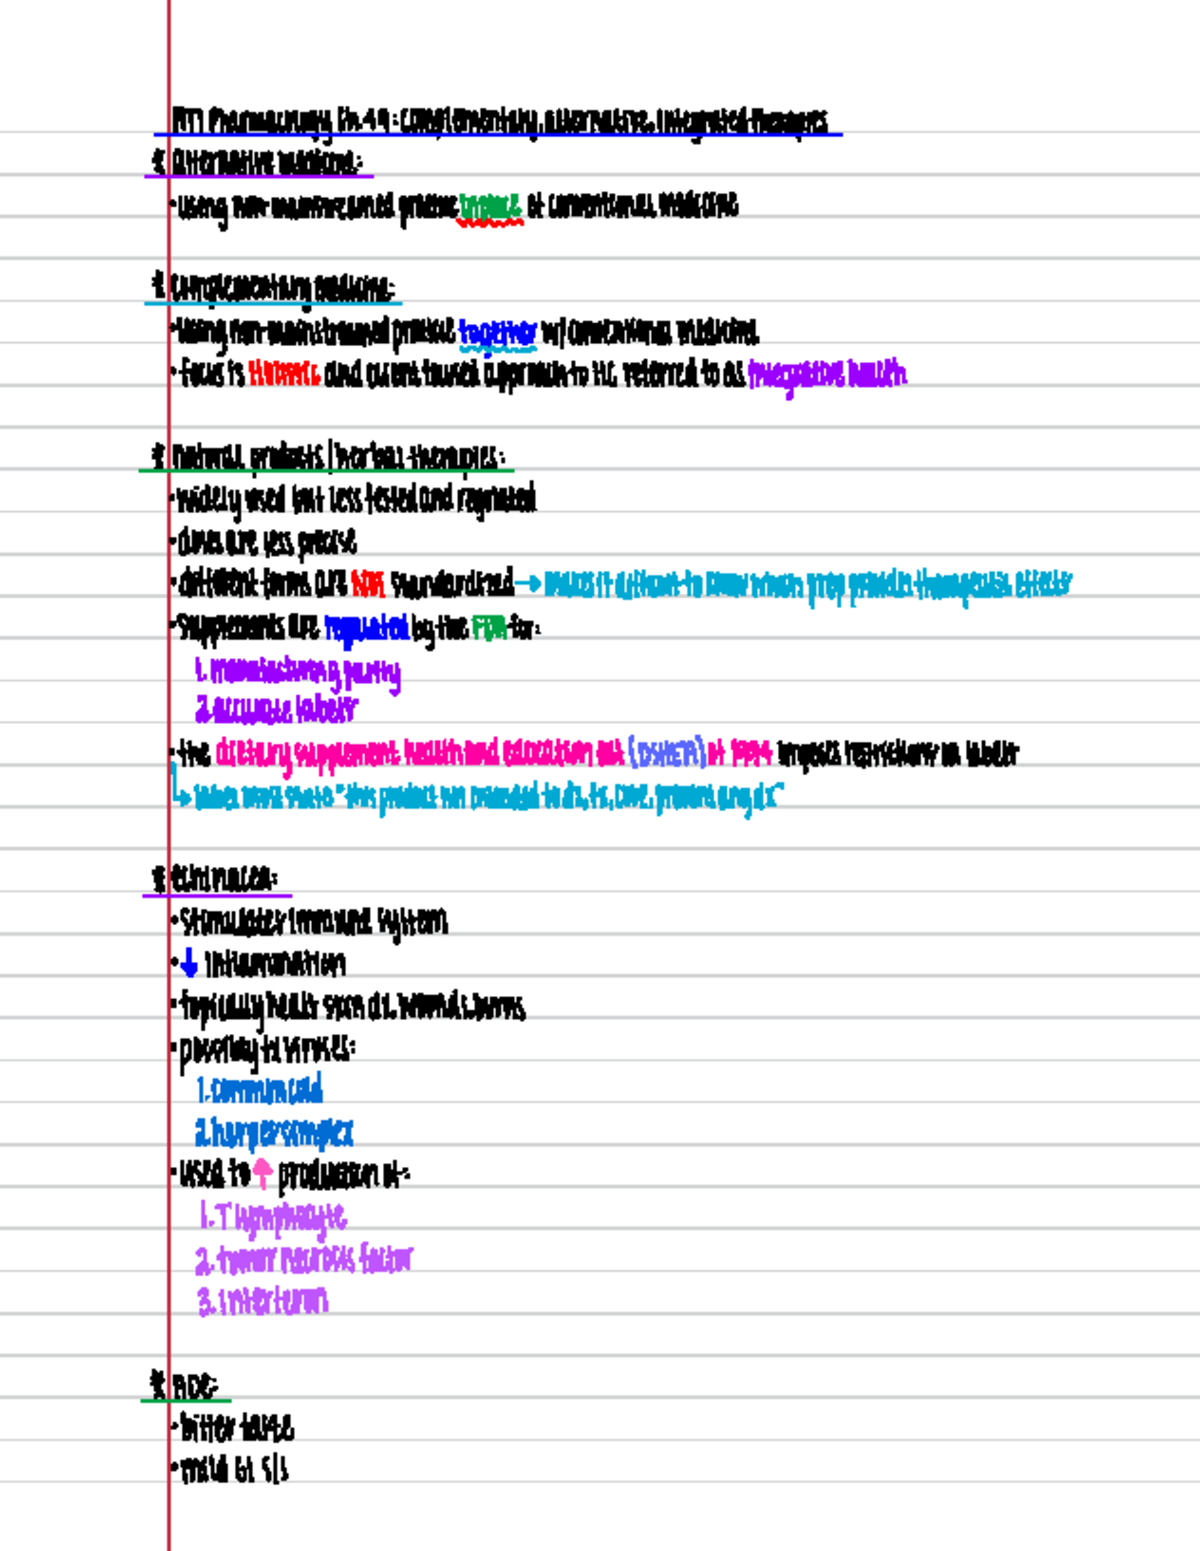 ATI Pharmacology Ch. 49: Complementary, alternative, integrated therapies
* alternative medicine:
• using non-mainstreamed practice in place of conventional medicine
* complementary medicine:
• using non-mainstreamed practice together w/ conventional medicine
• focus is Holistic and client focused approach to HC referred to as integrative health
* natural products/herbal therapies:
• widely used but less tested and regulated
• doses are less precise
• different forms are NOT standardized → makes it difficult to know which prep provides therapeutic effects
• supplements are regulated by the FDA for:
1. manufacturing purity
2. accurate labels
• the dietary supplement health and education act (DSHEA) of 1994 imposes restrictions on labels
↳ labels must state "this product not intended to dx, tx, cure, prevent any dx"
* echinacea:
• stimulates immune system
• ↓ inflammation
• topically heals skin d/t wounds, burns
• possibly tx viruses:
1. common cold
2. herpes simplex
• used to ↑ production of:
1. T lymphocyte
2. tumor necrosis factor
3. interferon
* ADE:
• bitter taste
• mild GI s/s